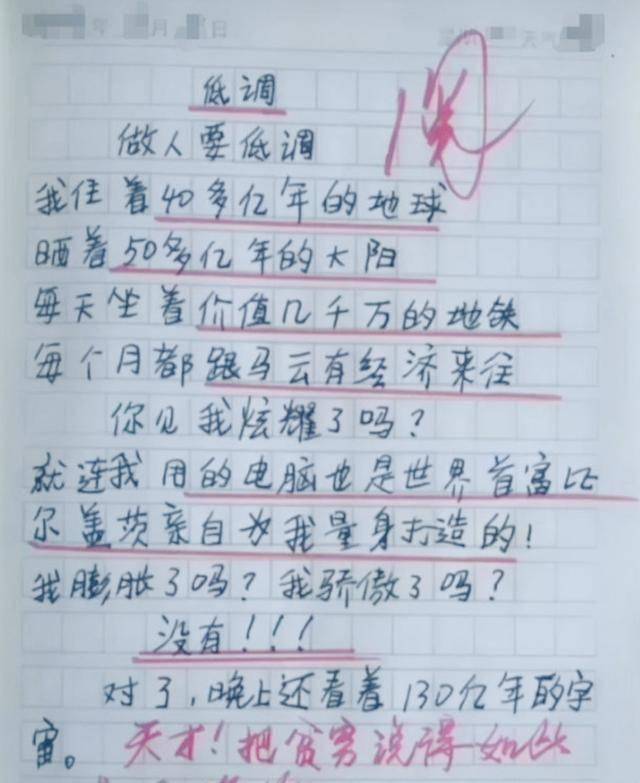 月 日 天气
低调
做人要低调
我住着40多亿年的地球
晒着50多亿年的太阳
每天坐着价值几千万的地铁
每个月都跟马云有经济来往
你见我炫耀了吗?
就连我用的电脑也是世界首富比
尔盖茨亲自为我量身打造的!
我膨胀了吗?我骄傲了吗?
没有!!!
对了,晚上还看着130亿年的宇
宙。
天才!把贫穷说得如此